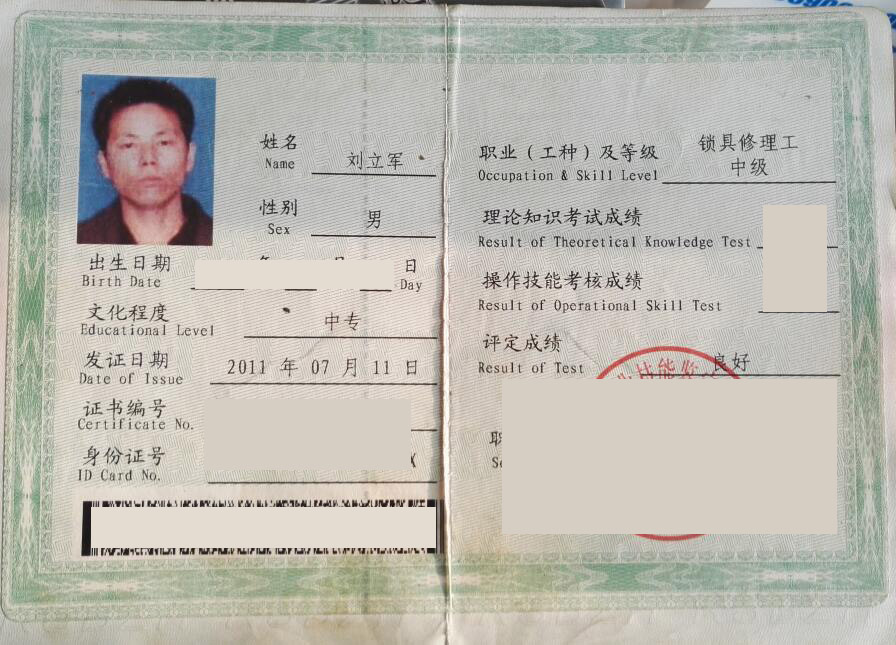 姓名
Name
刘立军
性别
Sex
男
出生日期
Birth Date
日
Day
文化程度
Educational Level
中专
发证日期
Date of Issue
2011 年 07 月 11 日
证书编号
Certificate No.
身份证号
ID Card No.
X
职业（工种）及等级
Occupation & Skill Level
锁具修理工
中级
理论知识考试成绩
Result of Theoretical Knowledge Test
操作技能考核成绩
Result of Operational Skill Test
评定成绩
Result of Test
良好
技能监
职